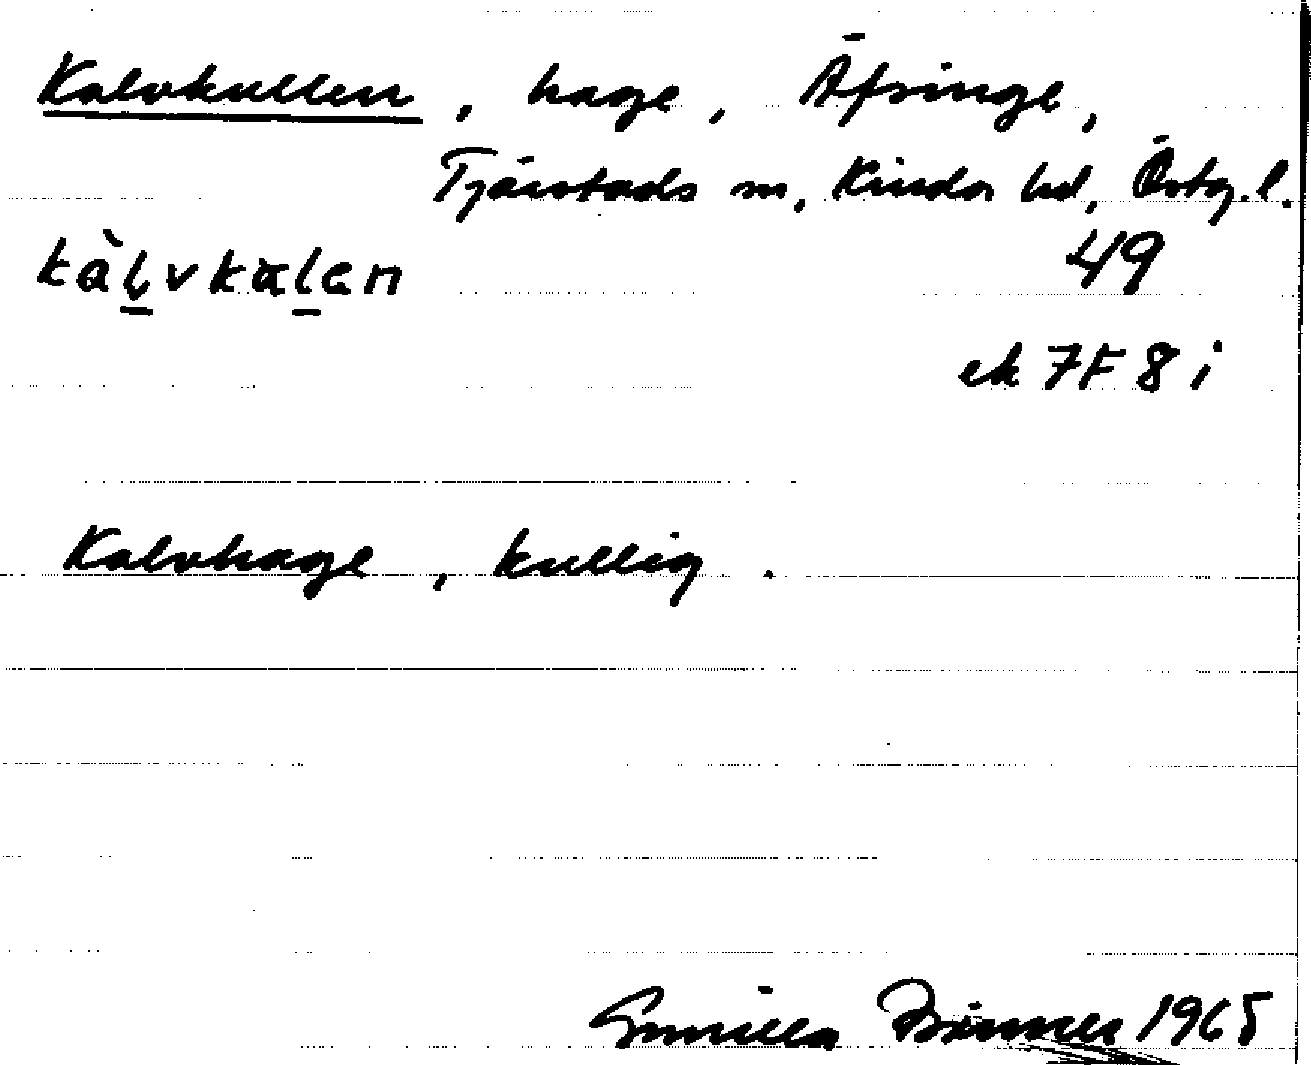 Kalvkullen, hage, Äfsinge,
Tjärstads sn, Kinda hd, Östg. l.
kàl̤vkalen 49
ek 7F 8 i
Kalvhage, kullig.
Gunilla 1965